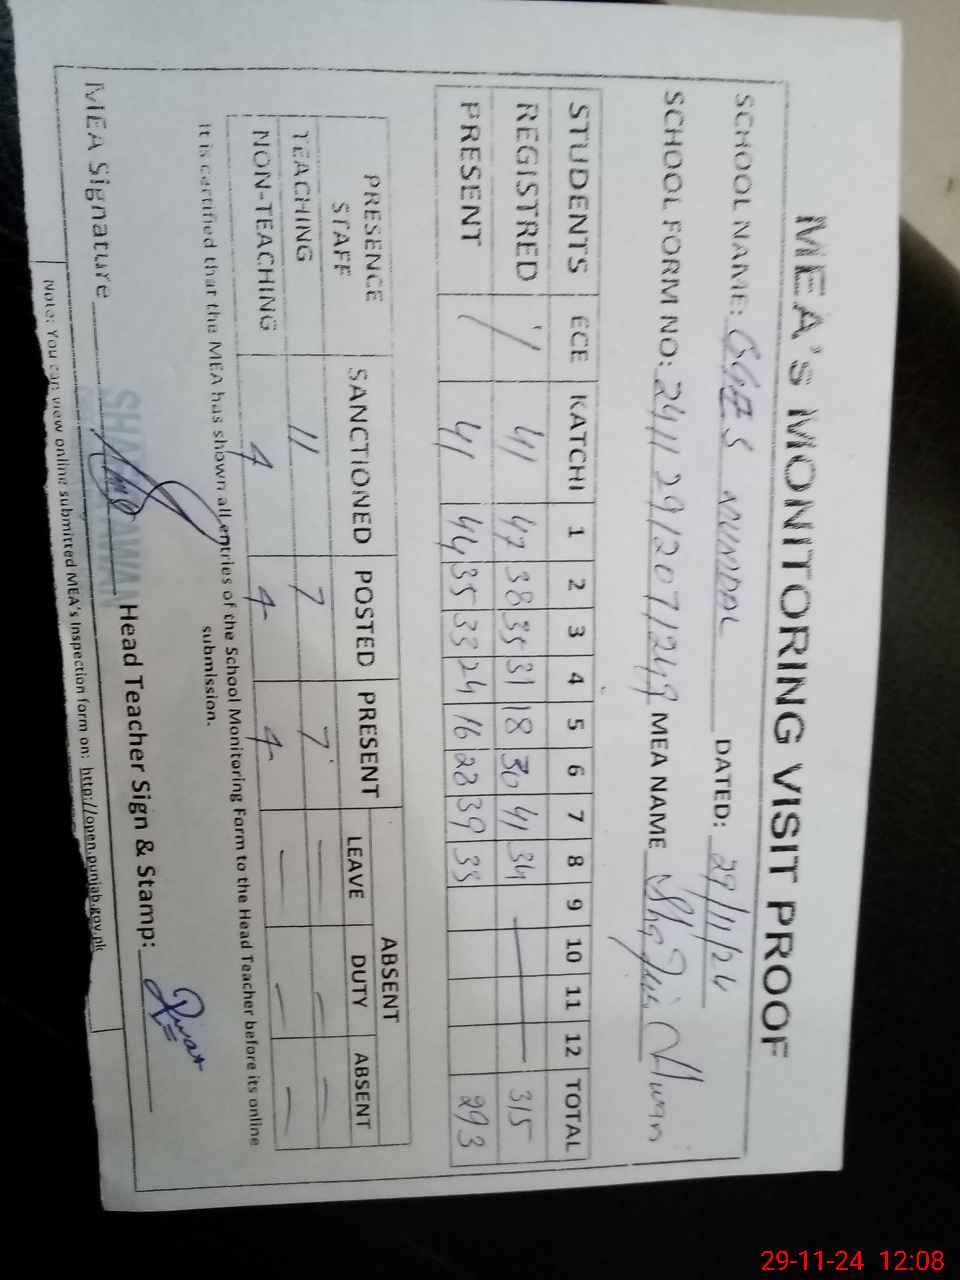 MEA's MONITORING VISIT PROOF
SCHOOL NAME: GGES DATED: 29/11/24
SCHOOL FORM NO: MEA NAME
STUDENTS ECE KATCHI 1 2 3 4 5 6 7 8 9 10 11 12 TOTAL
REGISTRED 41 47 38 35 31 18 30 41 34 315
PRESENT 41 44 35 33 24 16 28 39 33 293
PRESENCE STAFF SANCTIONED POSTED PRESENT ABSENT
LEAVE DUTY ABSENT
TEACHING 11 7 7
NON-TEACHING 4 4 4
It is certified that the MEA has shown all entries of the School Monitoring Form to the Head Teacher before its online
submission.
MEA Signature Head Teacher Sign & Stamp:
Note: You can view online submitted MEA's Inspection form on: http://open.punjab.gov.pk
29-11-24 12:08